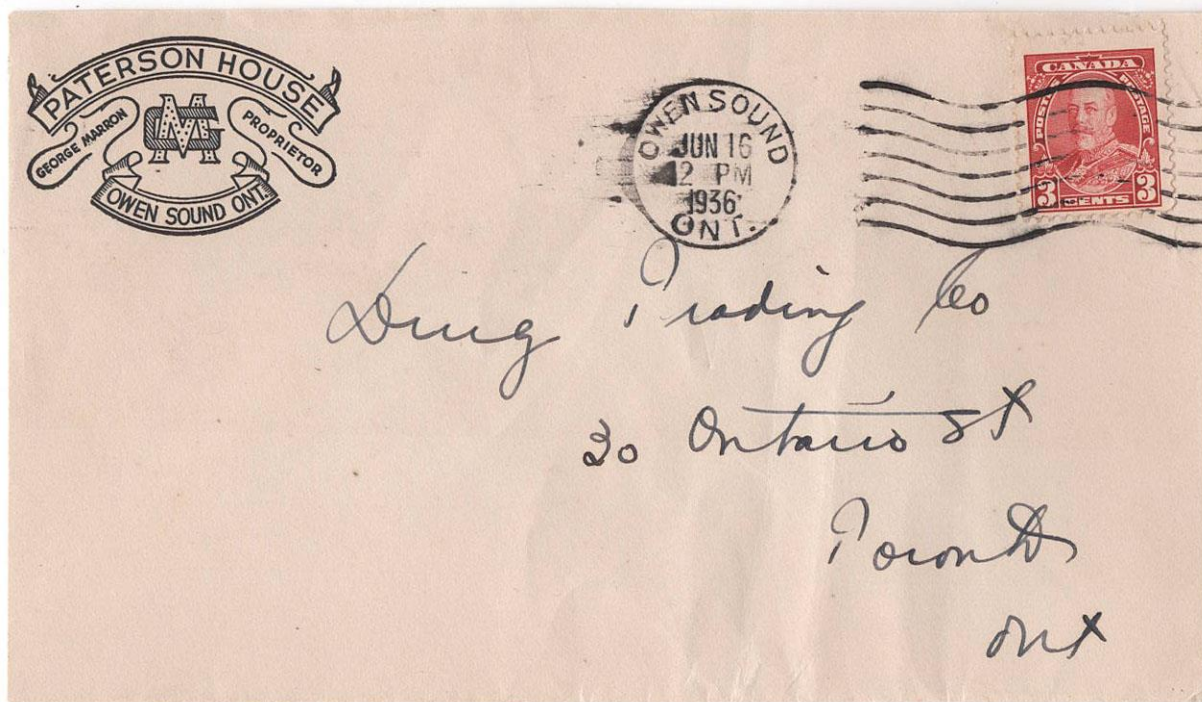 PATERSON HOUSE
GEORGE MARRON
GM
PROPRIETOR
OWEN SOUND ONT.
OWEN SOUND
JUN 16
2 PM
1936
ONT.
CANADA
POSTES POSTAGE
3 CENTS 3
Drug Trading Co
30 Ontario St
Toronto
Ont